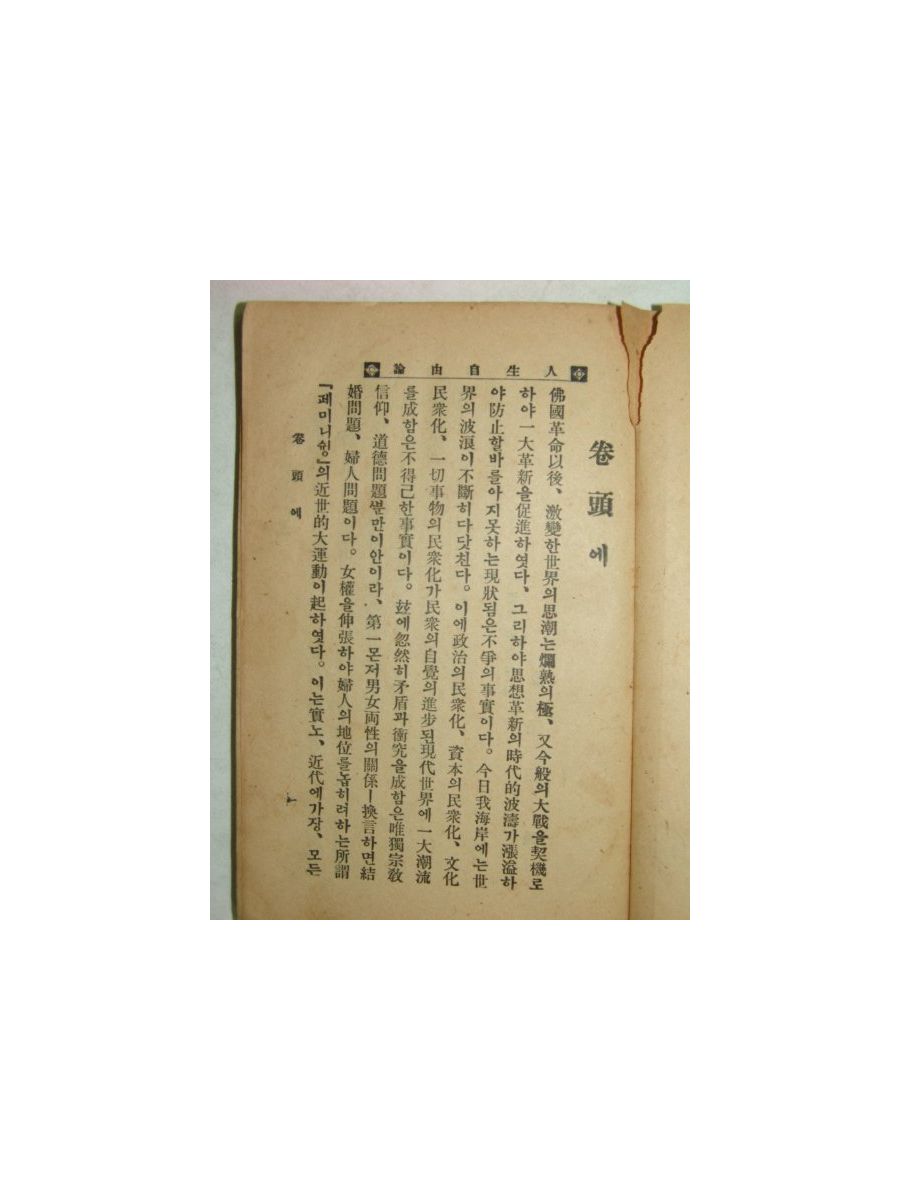 人生自由論
卷頭에
佛國革命以後、激變한世界의思潮는爛熟의極、又今般의大戰을契機로
하야一大革新을促進하엿다、그리하야思想革新의時代的波濤가漲溢하
야防止할바를아지못하는現狀됨은不爭의事實이다。今日我海岸에는世
界의波浪이不斷히다닷친다。이에政治의民衆化、資本의民衆化、文化
民衆化、一切事物의民衆化가民衆의自覺의進步된現代世界에一大潮流
를成함은不得已한事實이다。玆에忽然히矛盾과衝究을成함은唯獨宗敎
信仰、道德問題뿐만이안이라、第一몬저男女両性의關係ㅣ換言하면結
婚問題、婦人問題이다。女權을伸張하야婦人의地位를놉히려하는所謂
『페미니슁』의近世的大運動이起하엿다。이는實노、近代에가장、모든
卷頭에
一